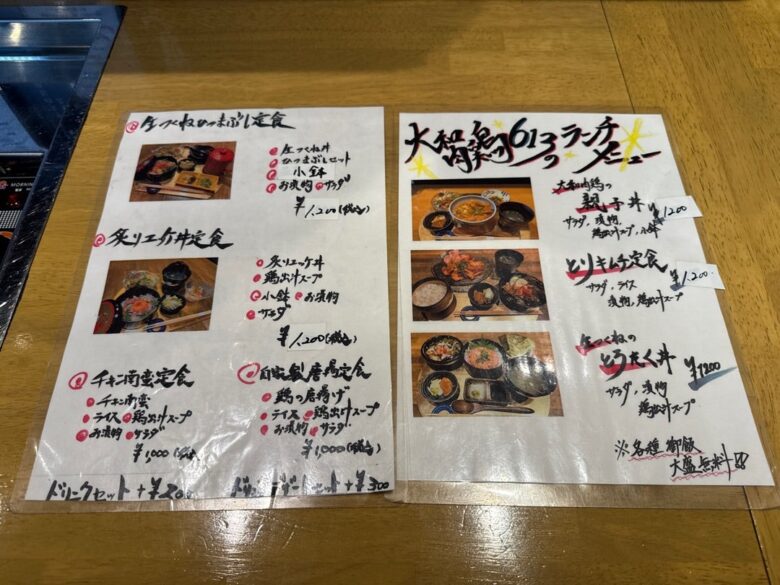 生つくねひつまぶし定食
生つくね丼
ひつまぶしセット
小鉢
お漬物 サラダ
¥1,200(税込)
炙りユッケ丼定食
炙りユッケ丼
鶏出汁スープ
小鉢 お漬物
サラダ
¥1,200(税込)
チキン南蛮定食
チキン南蛮
ライス 鶏出汁スープ
お漬物 サラダ
¥1,000(税込)
自家製唐揚定食
鶏の唐揚げ
ライス 鶏出汁スープ
お漬物 サラダ
¥1,000(税込)
ドリンクセット +¥200
セット +¥300
大和肉鶏 613のランチメニュー
大和肉鶏の
親子丼
¥1,200
サラダ, 漬物
鶏出汁スープ, 小鉢
とりキムチ定食
¥1,200
サラダ, ライス
漬物, 鶏出汁スープ
生つくねの
とろたく丼
サラダ, 漬物
鶏出汁スープ
※各種 御飯
大盛無料
MORNING